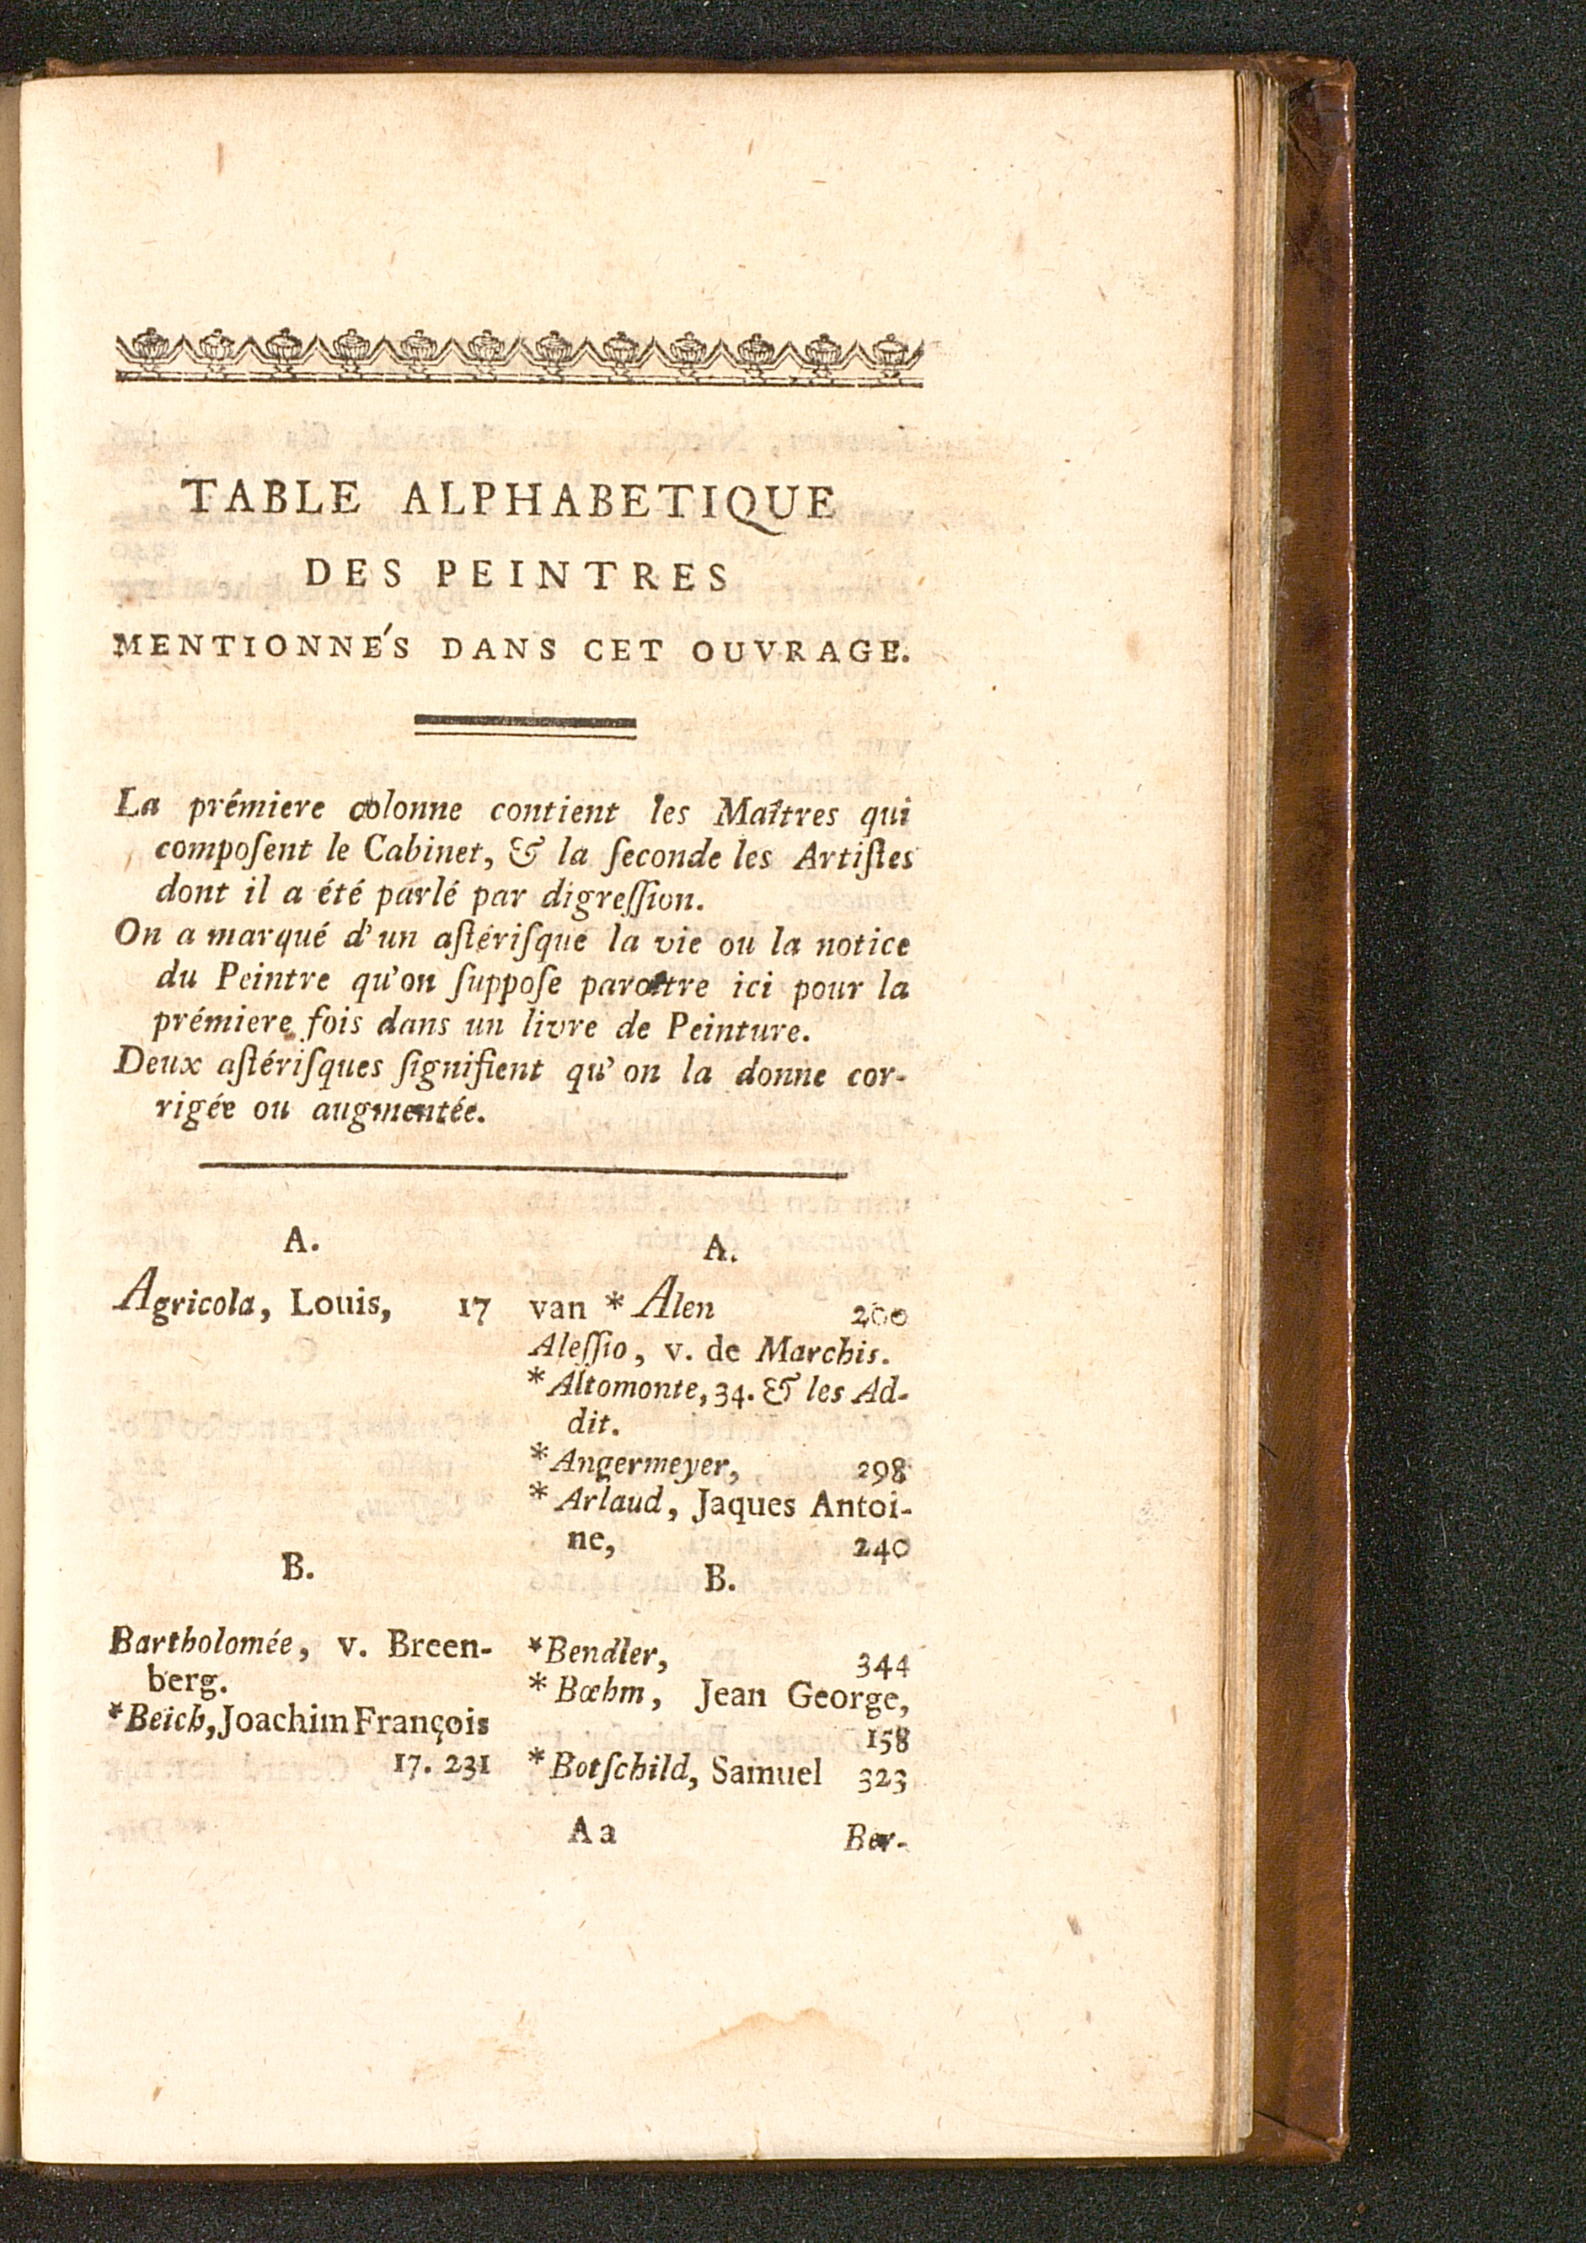 TABLE ALPHABETIQUE
DES PEINTRES
MENTIONNÉS DANS CET OUVRAGE.
La prémiere colonne contient les Maîtres qui
compoſent le Cabinet, & la ſeconde les Artiſtes
dont il a été parlé par digreſſion.
On a marqué d'un aſtériſque la vie ou la notice
du Peintre qu'on ſuppoſe paroître ici pour la
prémiere fois dans un livre de Peinture.
Deux aſtériſques ſignifient qu'on la donne cor-
rigée ou augmentée.
A.
Agricola, Louis, 17
B.
Bartholomée, v. Breen-
berg.
*Beich, Joachim François
17. 231
A.
van * Alen 200
Aleſſio, v. de Marchis.
*Altomonte, 34. & les Ad-
dit.
*Angermeyer, 298
*Arlaud, Jaques Antoi-
ne, 240
B.
*Bendler, 344
*Bœhm, Jean George,
158
*Botſchild, Samuel 323
Aa Ber-